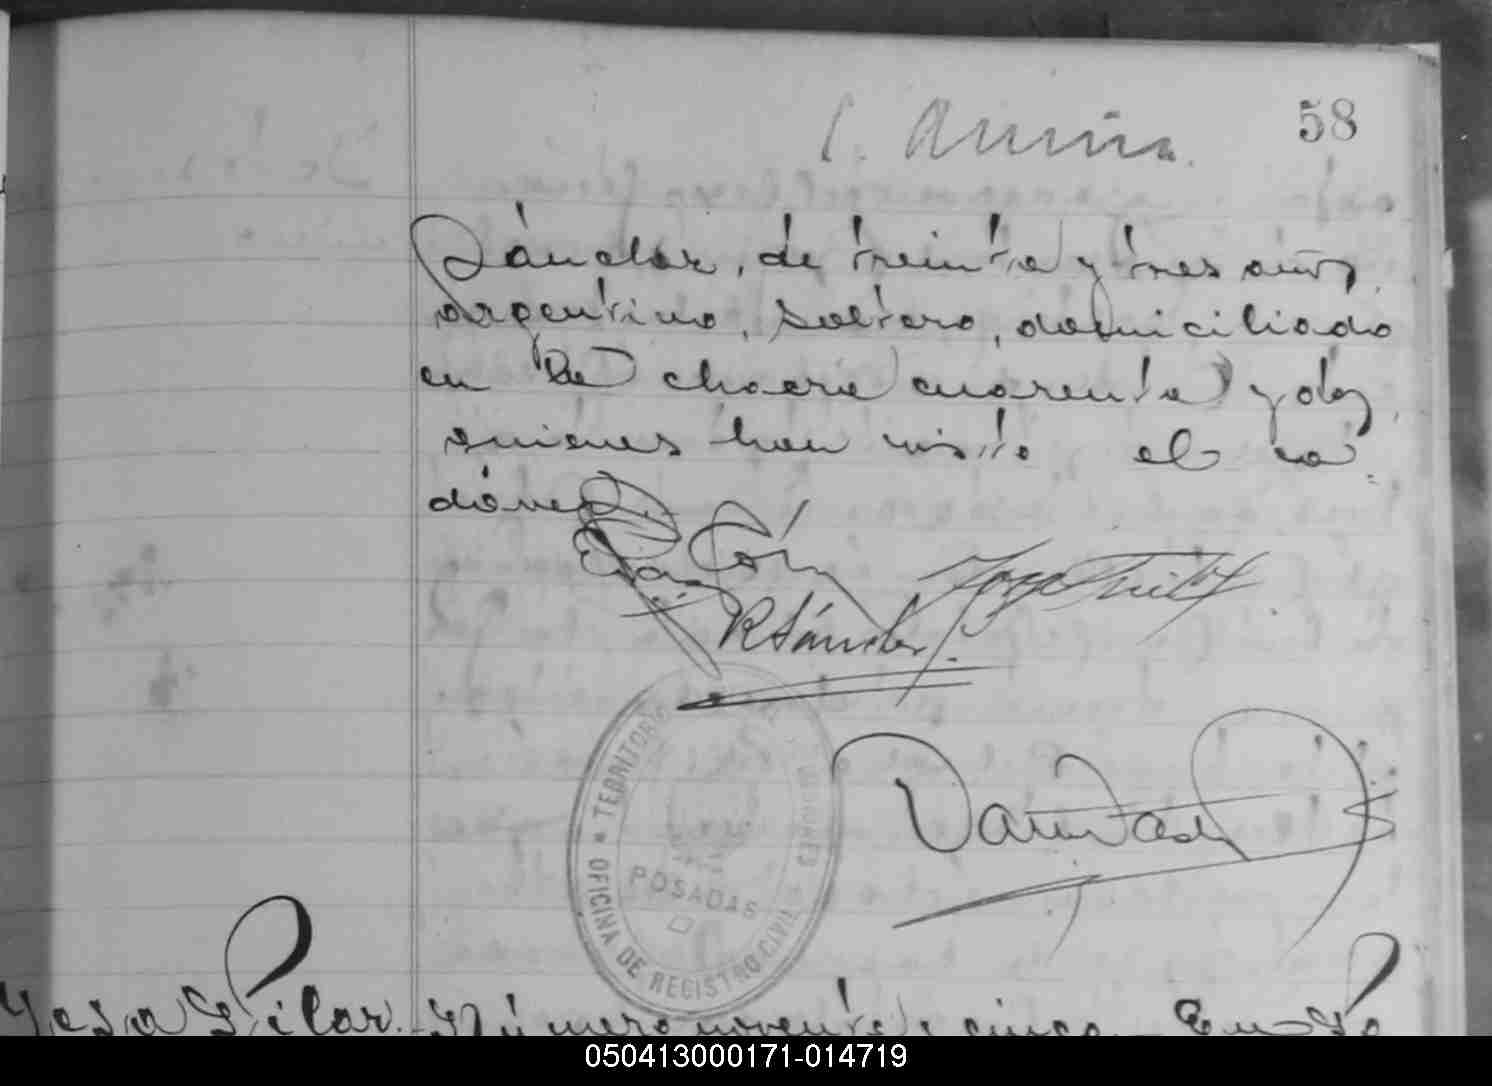 58
Sánchez, de treinta y tres años,
argentino, soltero, domiciliado
en la chacra cuarenta y dos,
quienes han visto el ca-
dáver.
R Sánchez
TERRITORIO MISIONES
POSADAS
OFICINA DE REGISTRO CIVIL
Pilar. Número noventa y cinco. En Po
050413000171-014719